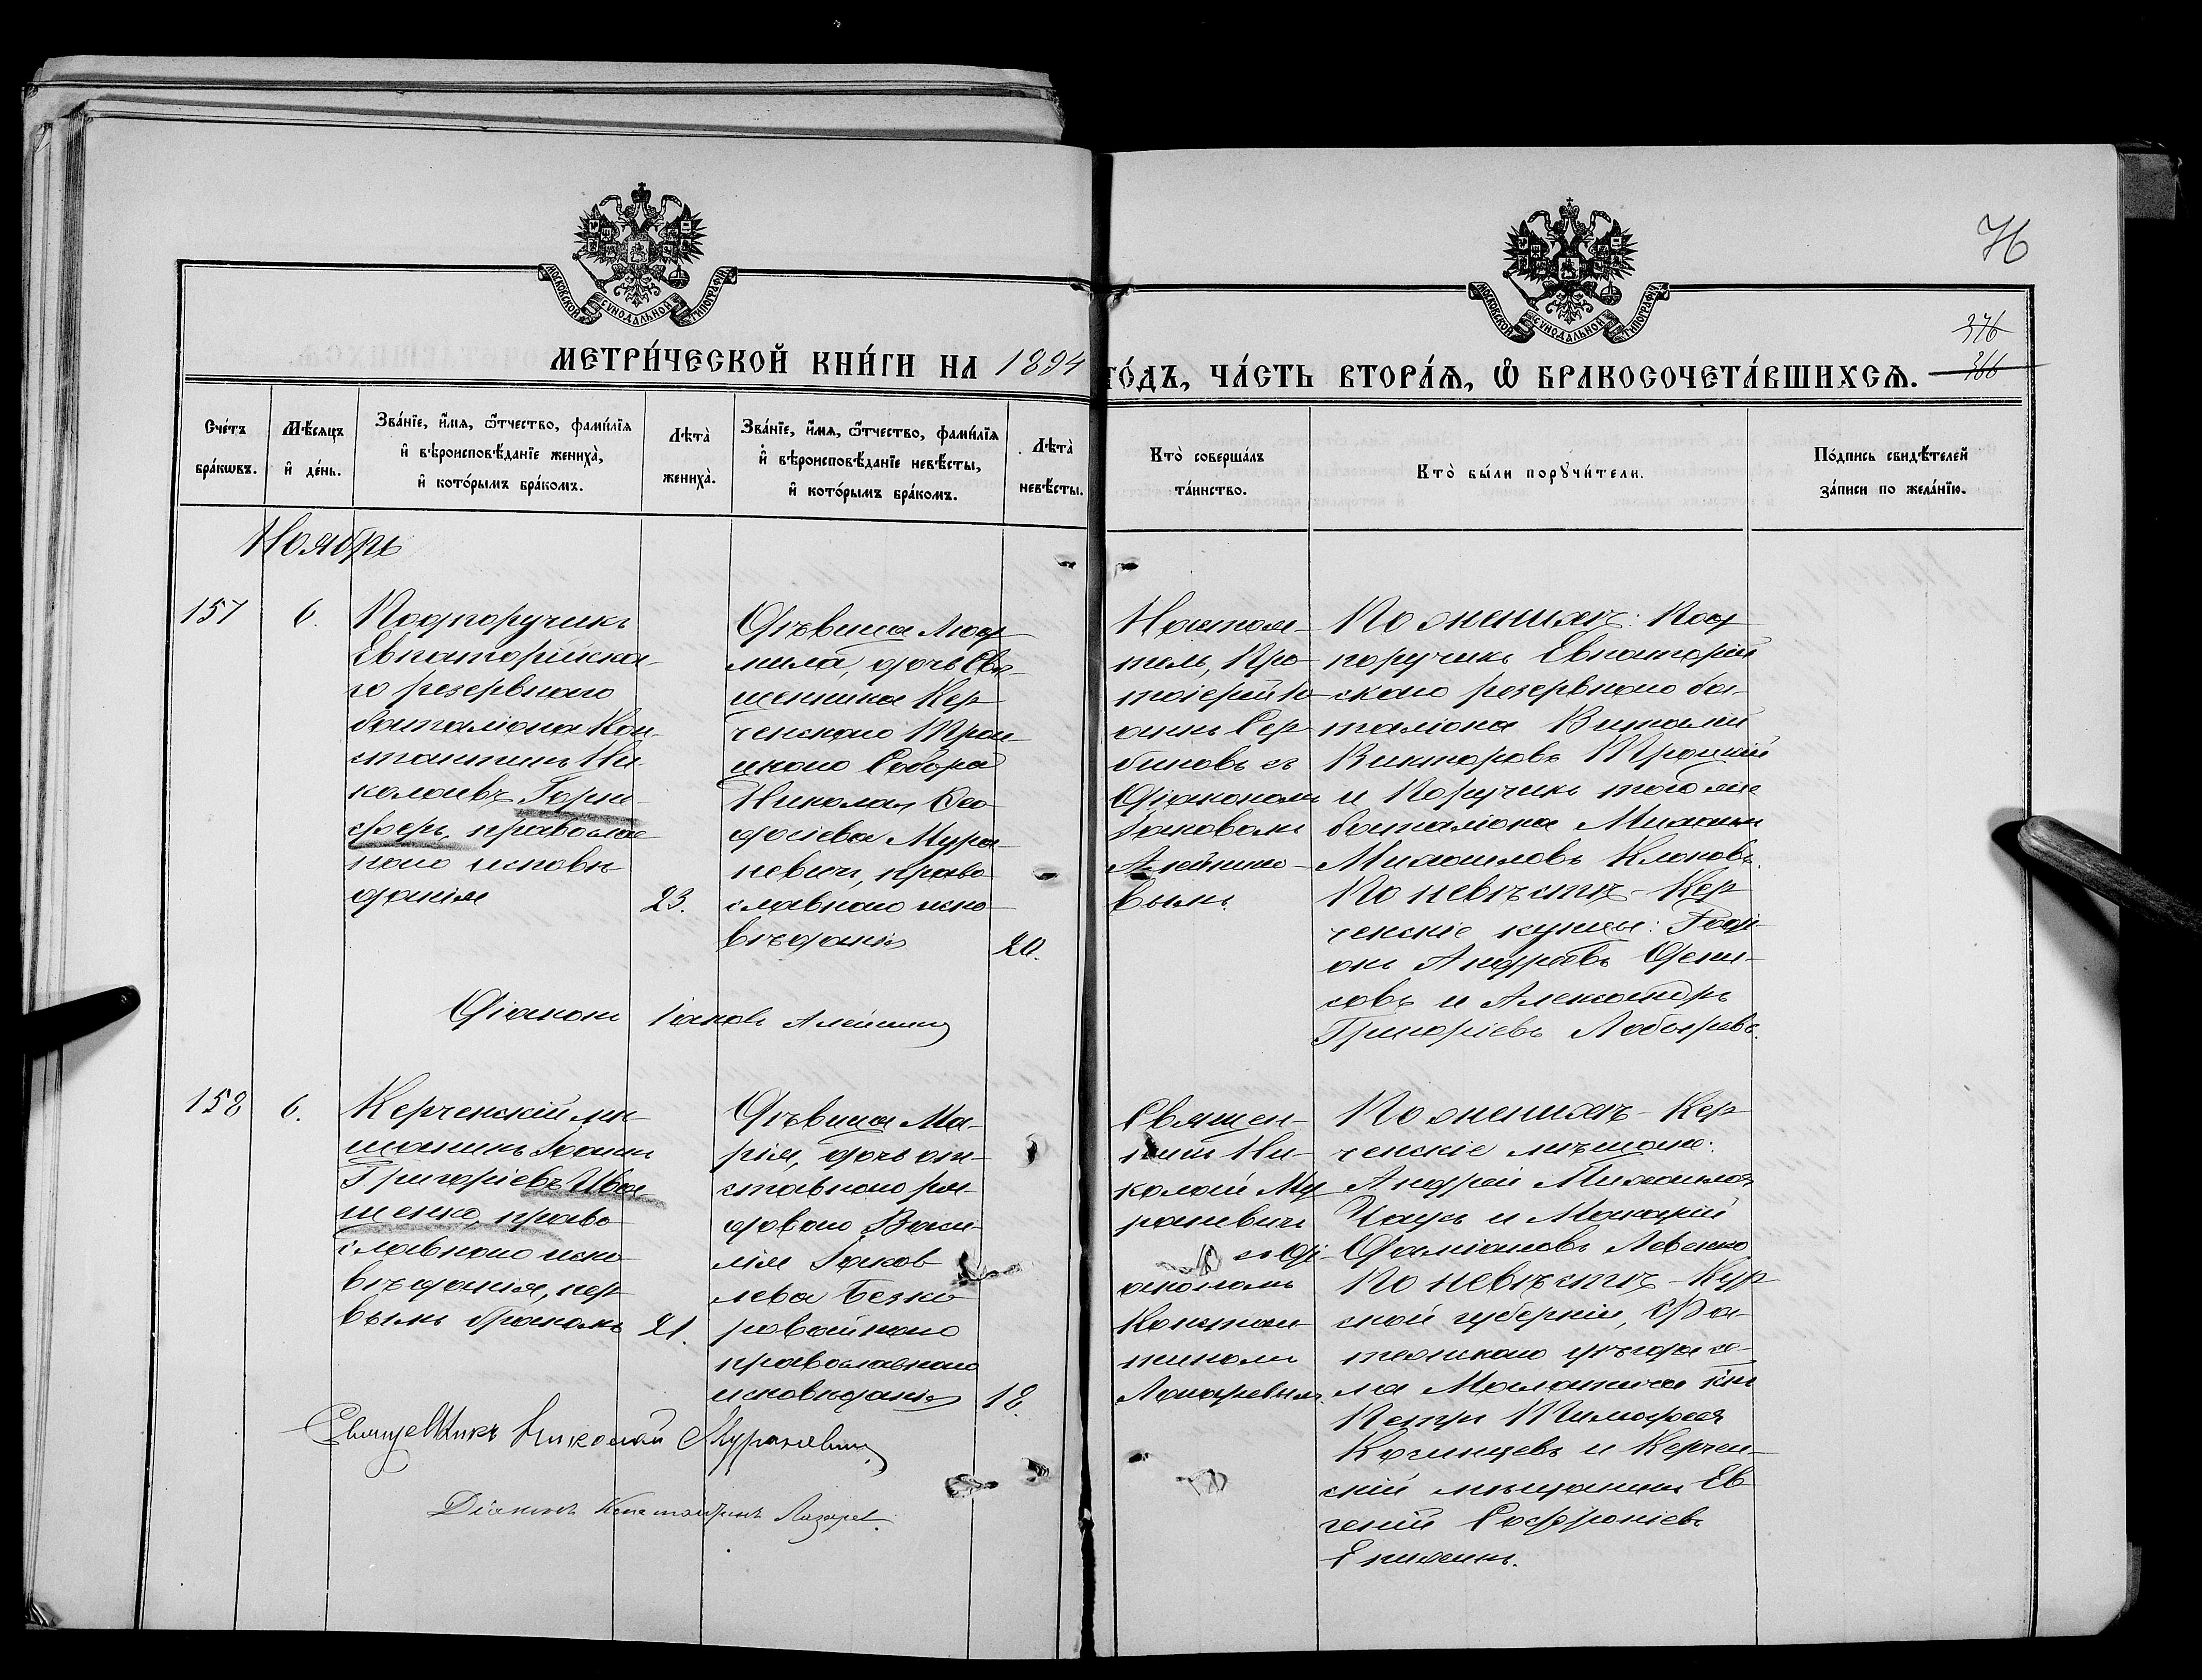 МОСКОВСКОЙ СѴНОДАЛЬНОЙ ТИПОГРАФІИ
МОСКОВСКОЙ СѴНОДАЛЬНОЙ ТИПОГРАФІИ
76
376
366
МЕТРИ́ЧЕСКОЙ КНИ́ГИ НА 1894
ГО́ДЪ, ЧА́СТЬ ВТОРА́Ѧ, Ѽ БРАКОСОЧЕТА́ВШИХСѦ.
Сче́тъ
бра́кѡвъ.
Мѣ́сяцъ
и҆ де́нь.
Зва́нїе, и҆́мѧ, ѻ҆́тчество, фами́лїѧ
и҆ вѣроисповѣ́данїе жениха̀,
и҆ кото́рымъ бра́комъ.
Лѣта̀
жениха̀.
Зва́нїе, и҆́мѧ, ѻ҆́тчество, фами́лїѧ
и҆ вѣроисповѣ́данїе невѣ́сты,
и҆ кото́рымъ бра́комъ.
Лѣта̀
невѣ́сты.
Кто̀ соверша́лъ
та́инство.
Кто̀ бы́ли порꙋчи́тели.
По́дпись свидѣ́телей
за́писи по жела́нїю.
Ноябрь
157
6.
Подпоручикъ
Евпаторійска-
го резервнаго
баталіона Кон-
стантинъ Ни-
колаевъ Горни-
феръ, православ
наго исповѣ
данія
23.
Дѣвица Люд
мила, дочь Свя-
щенника Кер
ченскаго Трои-
цкаго Собора
Николая Ѳео
досіева Мура
невичъ, право
славнаго испо
вѣданія
20.
Настоя-
тель, Про
тоіерей Іо
аннъ Сер
биновъ съ
Діакономъ
Іаковомъ
Алейнико-
вымъ.
По женихѣ: Под
поручикъ Евпаторій
скаго резервнаго ба-
таліона Виталій
Викторовъ Троцкій
и Поручикъ того же
баталіона Михаилъ
Михаиловъ Клоковъ.
По невѣстѣ - Кер
ченскіе купцы: Роді-
онъ Андреевъ Дени-
совъ и Александръ
Григоріевъ Лободревъ.
Діаконъ Іаковъ Алейник
158
6.
Керченскій мѣ-
щанинъ Іоаннъ
Григоріевъ Ива
щенко, право
славнаго испо
вѣданія, пер
вымъ бракомъ
21.
Дѣвица Ма-
рія, дочь от-
ставного ря-
дового Васи-
лія Іаков
лева Безко
ровайнаго
православнаго
исповѣданія
18.
Священ-
никъ Ни-
колай Му
раневичъ
съ Ді-
акономъ
Констан
тиномъ
Лазаревымъ.
По женихѣ - Кер
ченскіе мѣщане:
Андрей Михаиловъ
Чаусъ и Макарій
Даміановъ Левенко
По невѣстѣ - Кур
ской губерніи, Фа-
тежскаго уѣзда се-
ла Петръ Тимофеевъ
и Керчен-
скій мѣщанинъ Ев
геній Софроніевъ
Священникъ Николай Мураневичъ
Діаконъ Константинъ Лазарев.